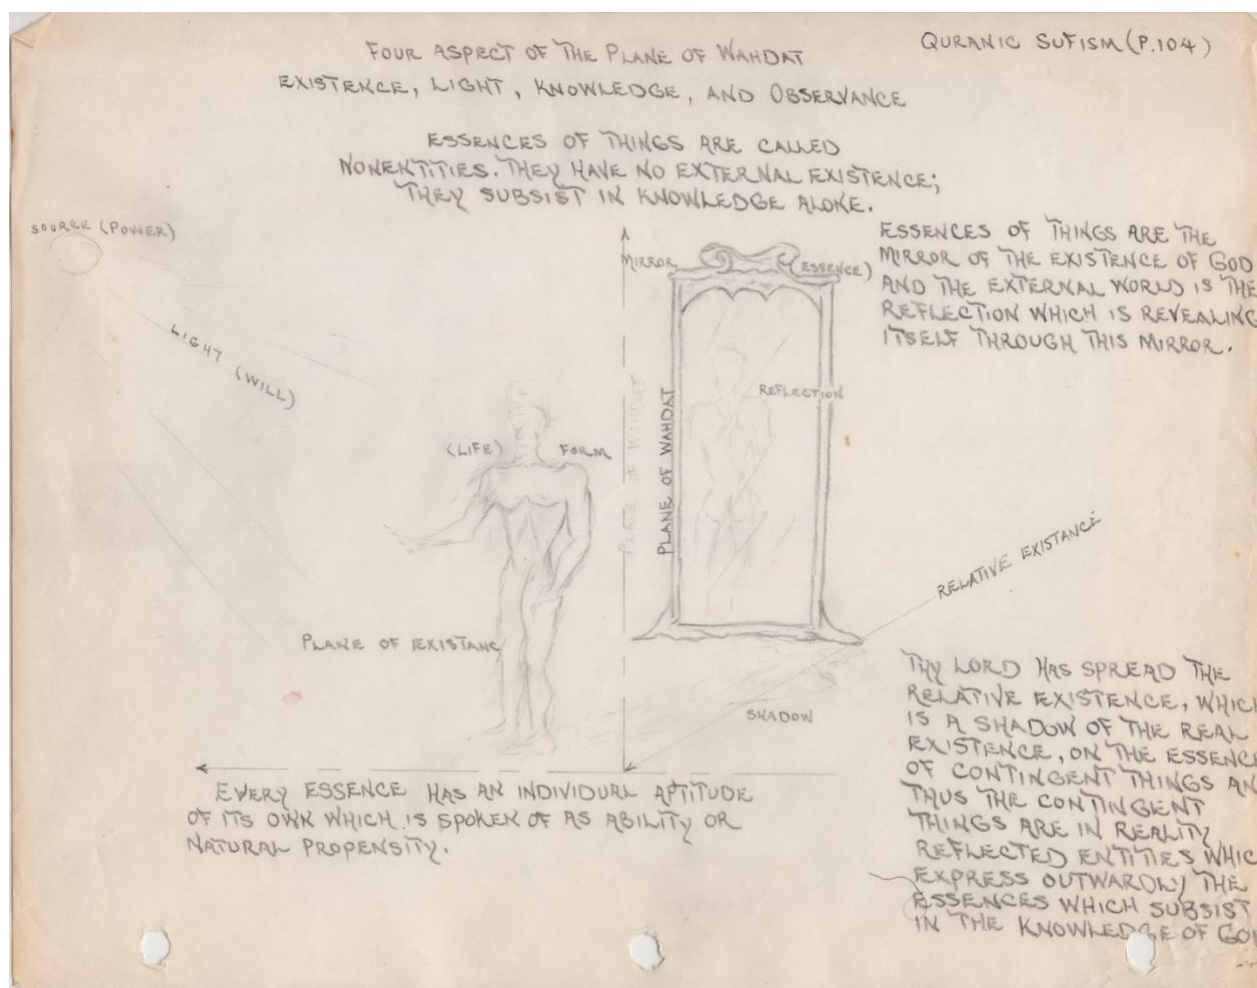 QURANIC SUFISM (P.104)
FOUR ASPECT OF THE PLANE OF WAHDAT
EXISTENCE, LIGHT, KNOWLEDGE, AND OBSERVANCE
ESSENCES OF THINGS ARE CALLED
NONENTITIES. THEY HAVE NO EXTERNAL EXISTENCE;
THEY SUBSIST IN KNOWLEDGE ALONE.
(POWER)
LIGHT (WILL)
MIRROR (ESSENCE)
ESSENCES OF THINGS ARE THE
MIRROR OF THE EXISTENCE OF GOD
AND THE EXTERNAL WORLD IS THE
REFLECTION WHICH IS REVEALING
ITSELF THROUGH THIS MIRROR.
REFLECTION
(LIFE) FORM
PLANE OF WAHDAT
PLANE OF WAHDAT
RELATIVE EXISTANCE
PLANE OF EXISTANC
SHADOW
THY LORD HAS SPREAD THE
RELATIVE EXISTENCE, WHICH
IS A SHADOW OF THE REAL
EXISTENCE, ON THE ESSENC
OF CONTINGENT THINGS AN
THUS THE CONTINGENT
THINGS ARE IN REALITY
REFLECTED ENTITIES WHIC
EXPRESS OUTWARDLY THE
ESSENCES WHICH SUBSIST
IN THE KNOWLEDGE OF GO
EVERY ESSENCE HAS AN INDIVIDUAL APTITUDE
OF ITS OWN WHICH IS SPOKEN OF AS ABILITY OR
NATURAL PROPENSITY.